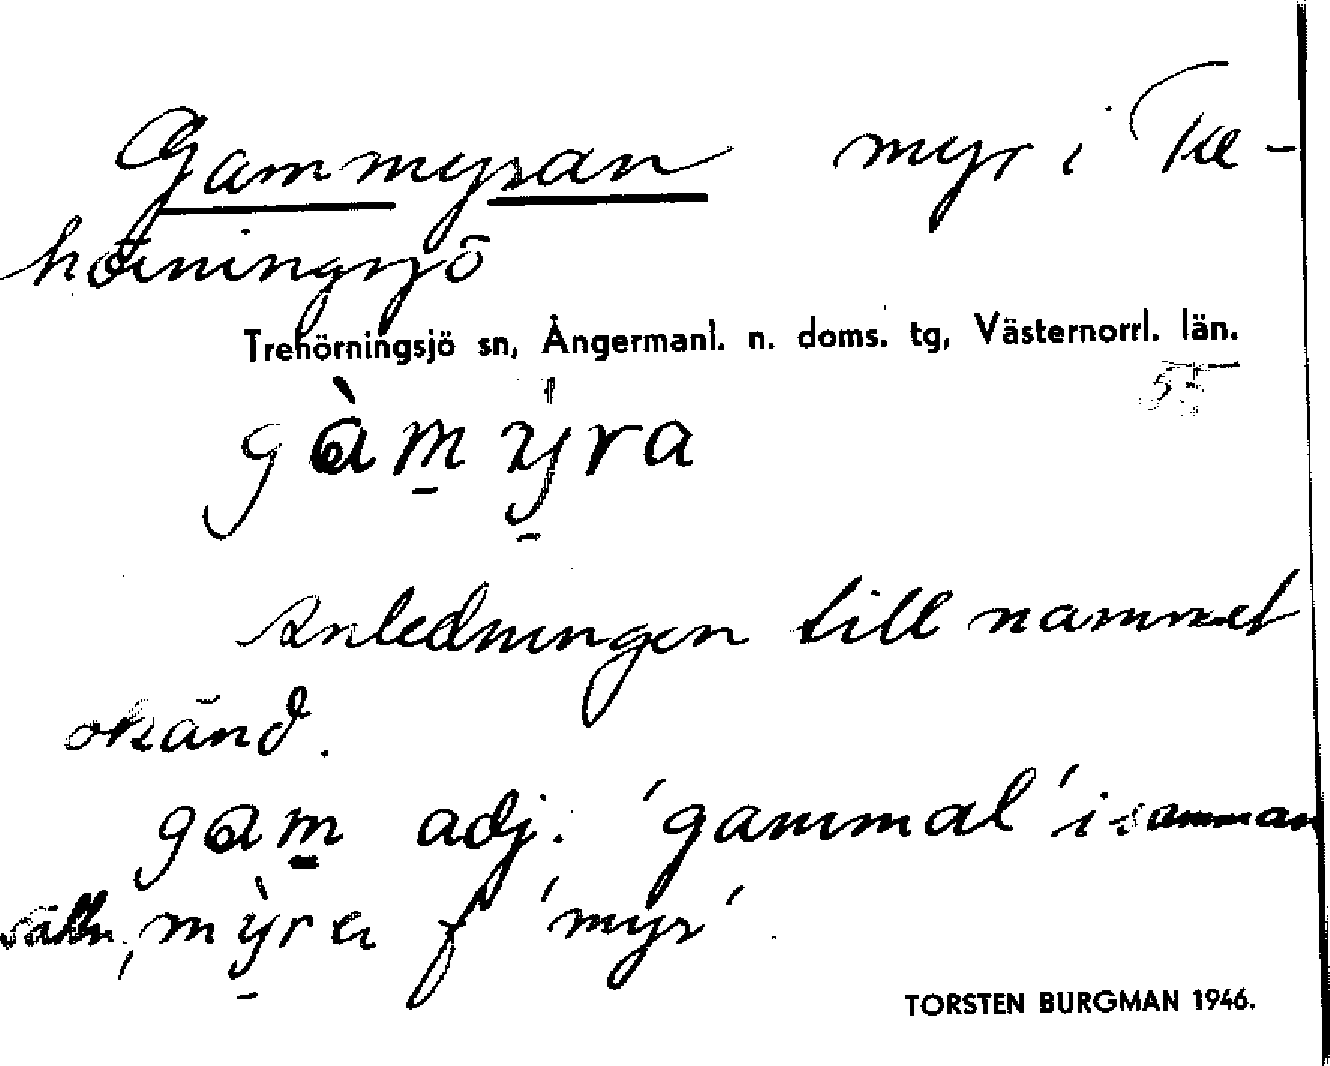 Gammyran myr i Tre-
hörningsjö
Trehörningsjö sn, Ångermanl. n. doms. tg, Västernorrl. län.
55
gàm̲ýra
Anledningen till namnet
okänd.
gam̲ adj. 'gammal' i samman
sättn, mỳra f 'myr'.
TORSTEN BURGMAN 1946.